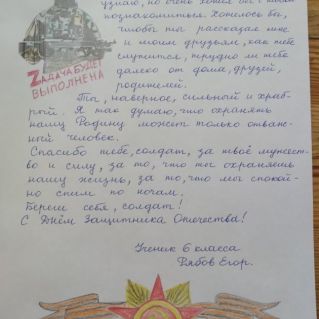 узнаю, но очень хотел бы с тобой
познакомиться. Хотелось бы,
чтобы ты рассказал мне
и моим друзьям, как тебе
служится, трудно ли тебе
далеко от дома, друзей,
родителей.
ZАДАЧА БУДЕТ
ВЫПОЛНЕНА
Ты, наверное, сильный и храб-
рый. Я так думаю, что охранять
нашу Родину может только отваж-
ный человек.
Спасибо тебе, солдат, за твоё мужест-
во и силу, за то, что ты охраняешь
нашу жизнь, за то, что мы спокой-
но спим по ночам.
Береги себя, солдат!
С Днём Защитника Отечества!
Ученик 6 класса
Рябов Егор.